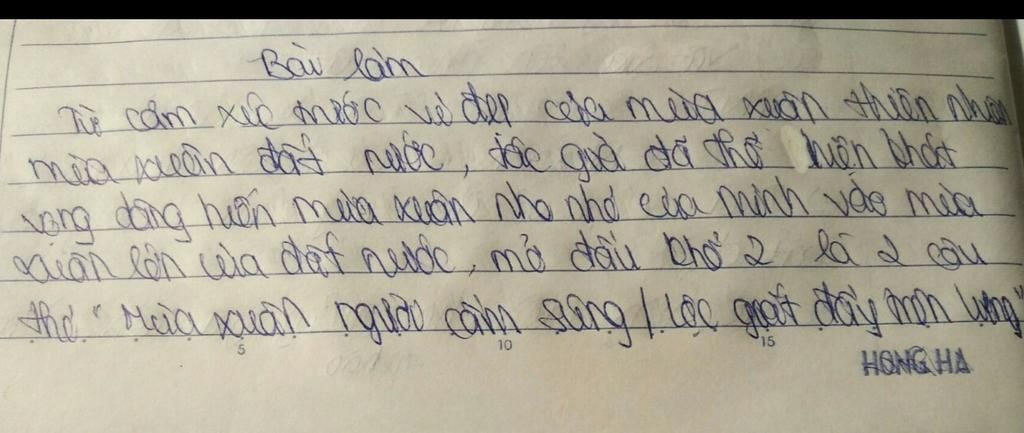 Bài làm
Từ cảm xúc trước vẻ đẹp của mùa xuân thiên nhiên
mùa xuân đất nước, tác giả đã thể hiện khát
vọng dâng hiến mùa xuân nho nhỏ của mình vào mùa
xuân lớn của đất nước, mở đầu khổ 2 là 2 câu
thơ "Mùa xuân người cầm súng / Lộc giắt đầy trên lưng"
5 10 15
HONG HA